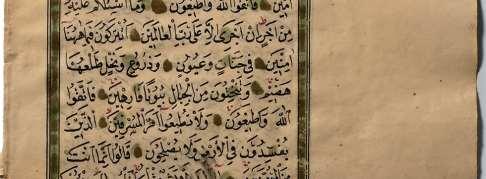 اَمِينٌ فَاتَّقُوا اللهَ وَاَطِيعُونِ وَمَا اَسْئَلُكُمْ عَلَيْهِ
مِنْ اَجْرٍ اِنْ اَجْرِىَ اِلَّا عَلٰى رَبِّ الْعَالَمِينَ اَتُتْرَكُونَ فِى مَا هٰهُنَا
اٰمِنِينَ فِى جَنَّاتٍ وَعُيُونٍ وَزُرُوعٍ وَنَخْلٍ طَلْعُهَا
هَضِيمٌ وَتَنْحِتُونَ مِنَ الْجِبَالِ بُيُوتًا فَارِهِينَ فَاتَّقُوا
اللهَ وَاَطِيعُونِ وَلَا تُطِيعُوا اَمْرَ الْمُسْرِفِينَ اَلَّذِينَ
يُفْسِدُونَ فِى الْاَرْضِ وَلَا يُصْلِحُونَ قَالُوا اِنَّمَا اَنْتَ